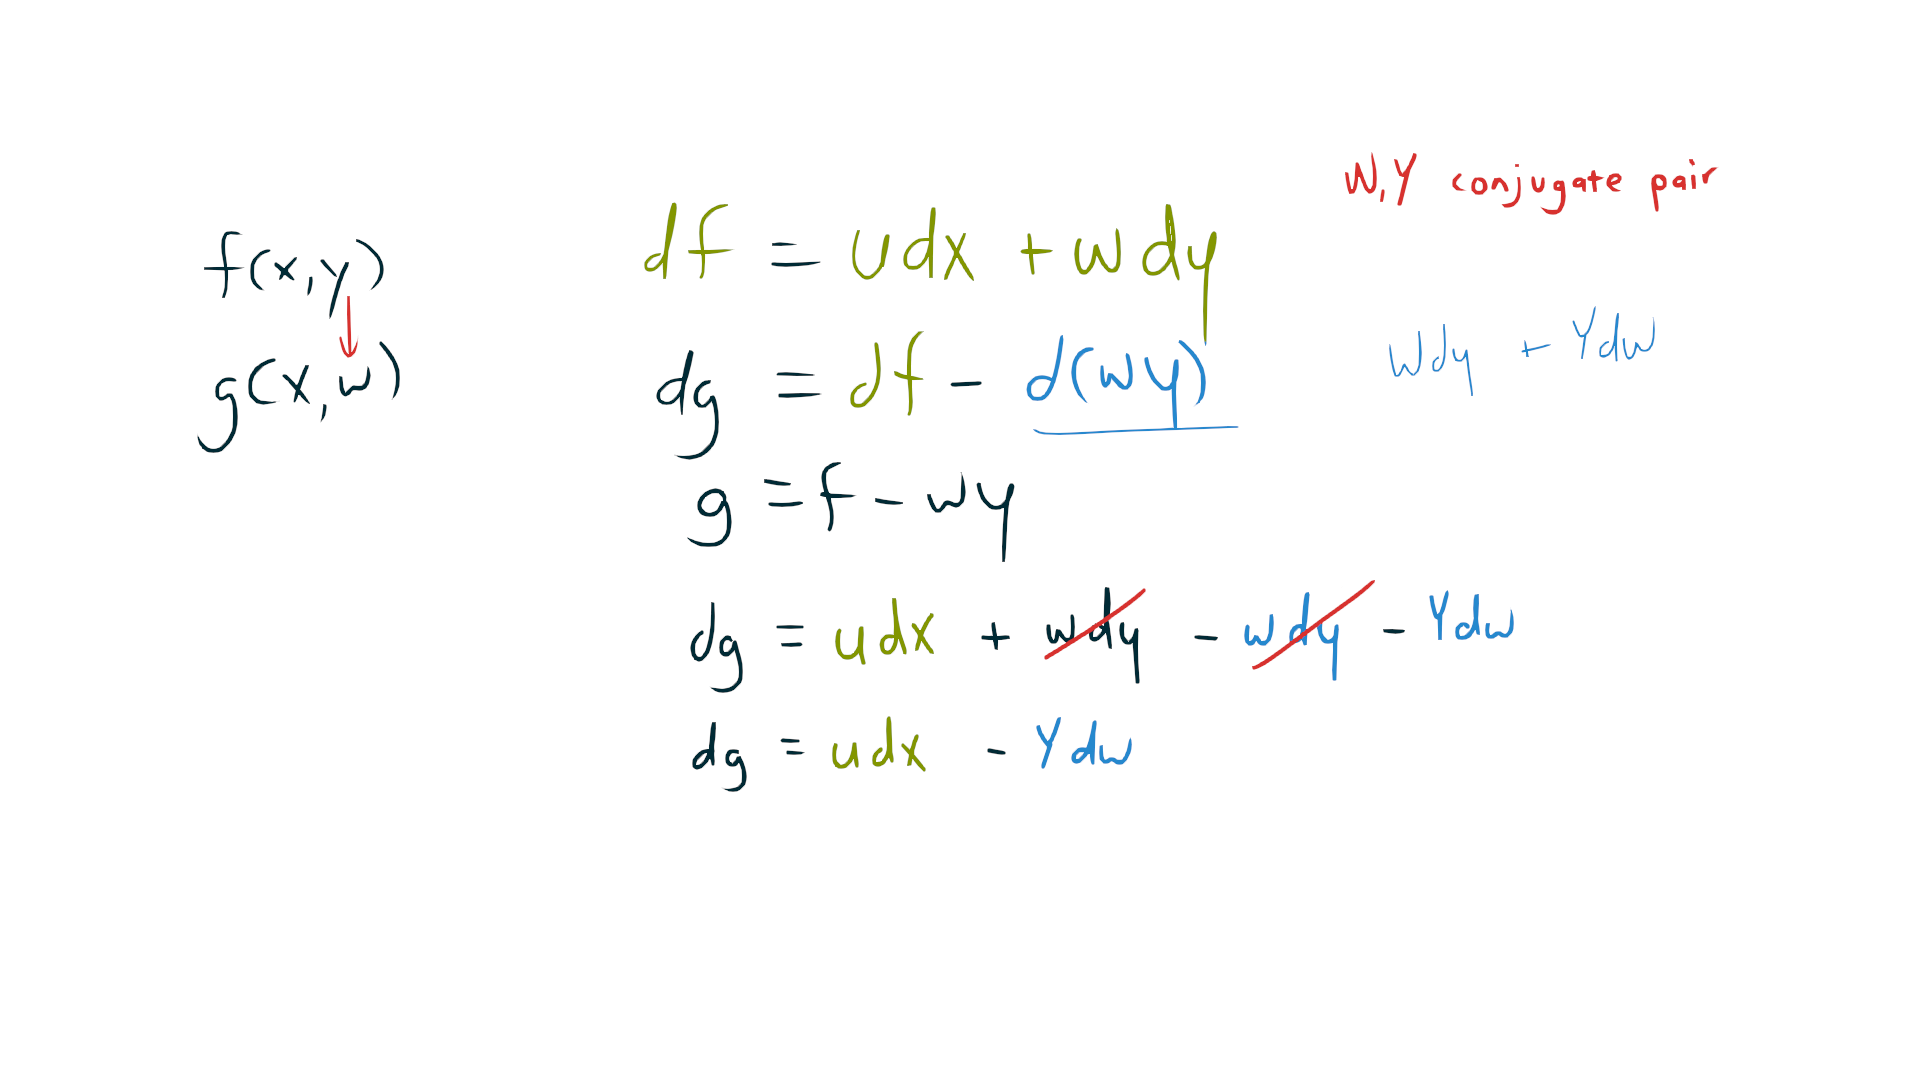 W,Y conjugate pair
f(x,y)
df = udx + wdy
g(x,w)
dg = df - d(wy)
Wdy + Ydw
g = f - wy
dg = udx + wdy - wdy - Ydw
dg = udx - Ydw